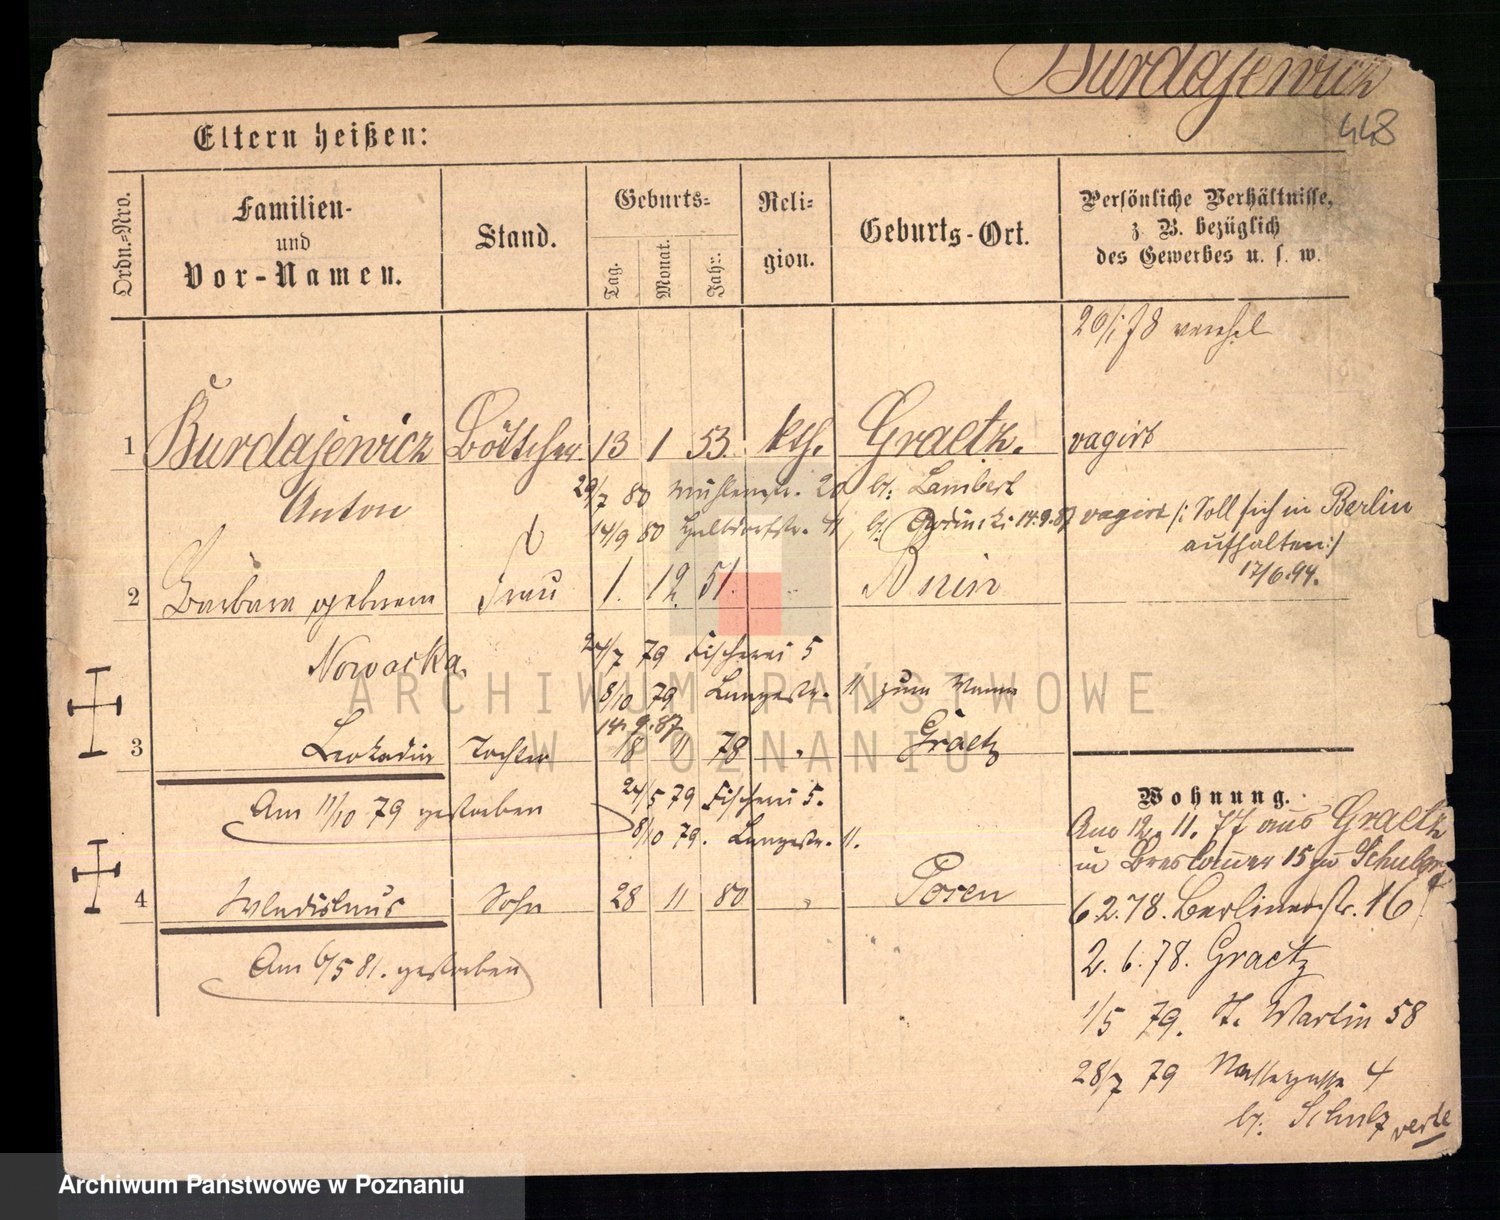 Burdajewicz
448
Eltern heißen:
Ordn.=Nro.
Familien-
und
Vor-Namen.
Stand.
Geburts=
Tag.
Monat.
Jahr.
Reli-
gion.
Geburts-Ort.
Persönliche Verhältnisse,
z. B. bezüglich
des Gewerbes u. s. w.
20/1 78
1 Burdajewicz Böttcher 13 1 53 kth. Graetz. vagirt
Anton
29/7 80 Mühlenstr. 20 b. Lambert
14/9 80 Halbdorfstr. 14.9.87 vagirt /: Soll sich in Berlin
aufhalten :/
17/6.94.
2 Barbara geborene Frau 1. 12. 51. Bnin
Nowacka.
24/7 79 Fischerei 5
8/10 79 Langestr. 11
14.9.87
3 Leokadia Tochter 18 11 78 Graetz
Am 11/10 79 gestorben
24/5 79 Fischerei 5.
8/10 79. Langestr. 11.
4 Wladislaus Sohn 28 11 80 Posen
Am 6/5 81. gestorben
Wohnung.
Am 12. 11. 77 aus Graetz
in Breslauer 15
6.2.78. Berlinerstr. 16
2. 6. 78. Graetz
1/5 79. St. Martin 58
28/7 79 Nassegasse 4
b. Schulz
ARCHIWUM PAŃSTWOWE
W POZNANIU
Archiwum Państwowe w Poznaniu